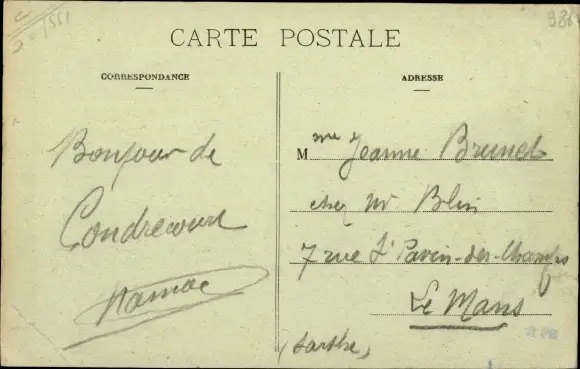 CARTE POSTALE
CORRESPONDANCE
Bonjour de
Gondrecourt
ADRESSE
Mme Jeanne Brunet
chez Mr Blin
7 rue St Pavin-des-Champs
Le Mans
(Sarthe)